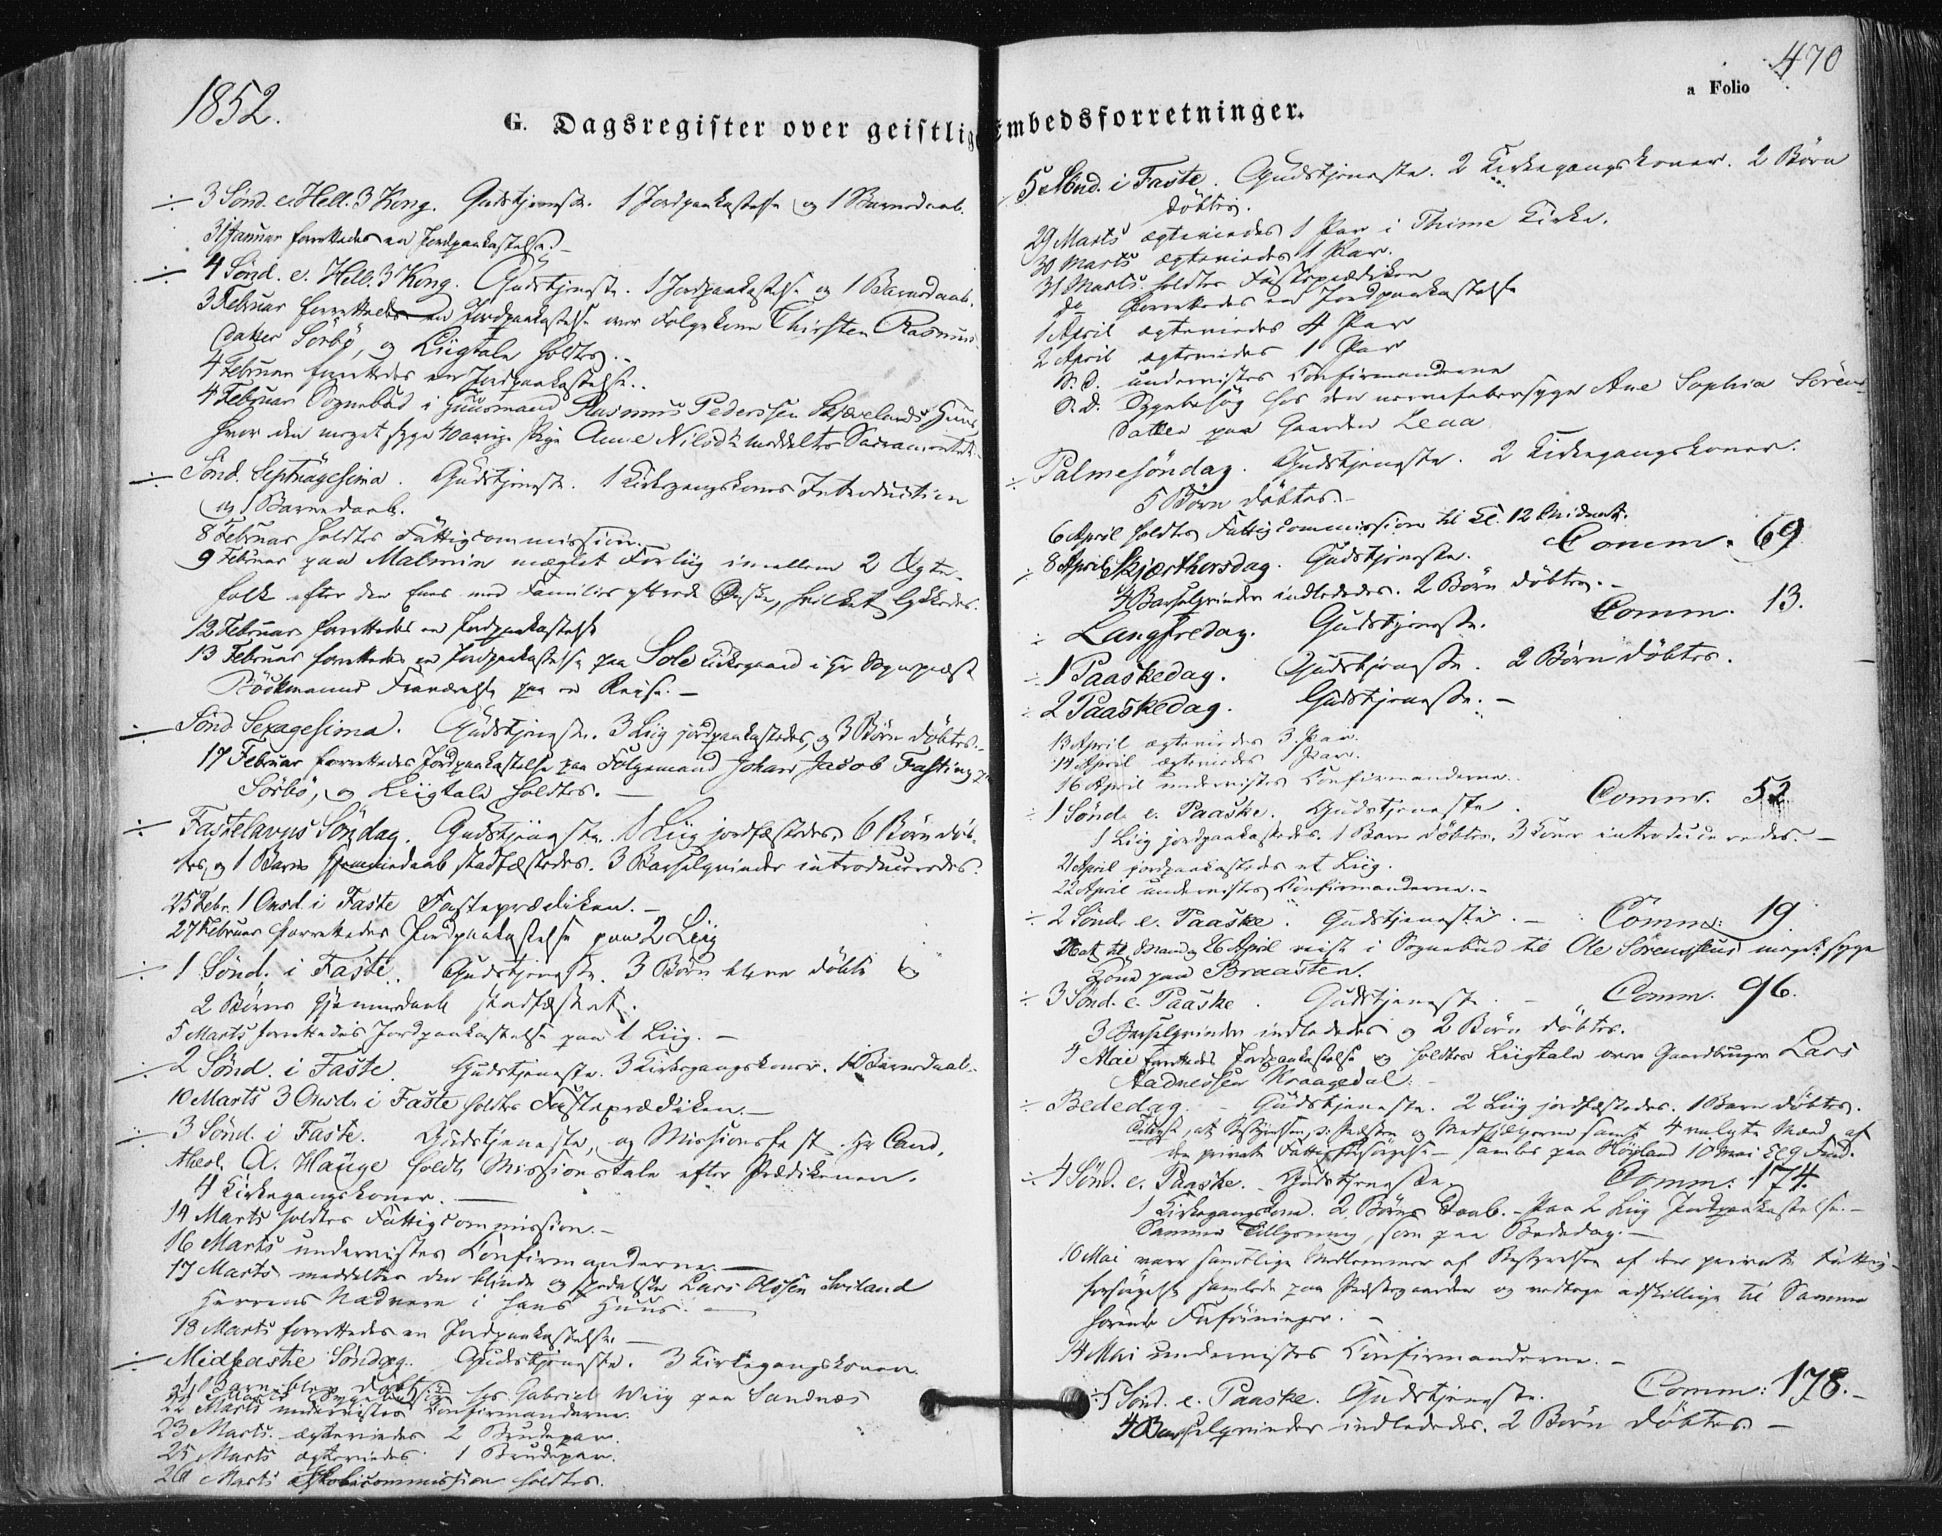 1852.
G. Dagsregister over geistlig
÷ 3 Sønd. e. Hell. 3 Kong. Gudstjeneste. 1 Jordpaakastelse og 1 Barnedaab.
31 Januar forrettedes en Jordpaakastelse.
÷ 4 Sønd. e. Hell. 3 Kong. Gudstjeneste. 1 Jordpaakastelse og 1 Barnedaab.
3 Februar forrettedes en Jordpaakastelse over Folgekone Thirsten Rasmus-
datter Sørbø, og Liigtale holdtes.
4 Februar forrettedes en Jordpaakastelse.
4 Februar Sognebud i Huusmand Rasmus Pederssen Skjævelands Huus
hvor den meget syge Pige Anne Nilsd. meddeltes Sacramentet.
÷ Sønd. Septuagesima. Gudstjeneste. 1 Kirkegangskones Introduction
og 1 Barnedaab.
8 Februar holdtes Fattigcommission.
9 Februar paa Malmin mæglet Forliig imellem 2 Ægte-
folk efter den Enes med Families yttrede Ønske, hvilket lykkedes.
12 Februar forrettedes en Jordpaakastelse
13 Februar forrettedes en Jordpaakastelse paa Sole Kirkegaard i Hr Sognepræst
Fraværelse paa en Reise. –
÷ Sønd Sexagesima. Gudstjeneste. 3 Liig jordpaakastedes, og 3 Børn døbtes.
17 Februar forrettedes Jordpaakastelse paa Folgemand Johan Jacob Fasting
Sørbø, og Liigtale holdtes. –
÷ Fastelavns Søndag. Gudstjeneste. 1 Liig jordfæstedes, 6 Børn døb-
tes, og 1 Barns Hjemmedaab stadfæstedes. 3 Barselqvinder introduceredes.
25 Febr. 1 Onsd. i Faste Fasteprædiken. –
27 Februar forrettedes Jordpaakastelse paa 2 Liig
÷ 1 Sønd. i Faste. Gudstjeneste. 3 Børn bleve døbte og
2 Børns Hjemmedaab stadfæstet.
5 Marts forrettedes Jordpaakastelse paa 1 Liig. –
÷ 2 Sønd. i Faste. Gudstjeneste. 3 Kirkegangskoner. Barnedaab.
10 Marts 3 Onsd. i Faste holdtes Fasteprædiken. –
÷ 3 Sønd. i Faste. Gudstjeneste, og Missionsfest. Hr Cand.
theol. A. Hauge holdt Missionstale efter Prædikenen.
4 Kirkegangskoner. –
14 Marts holdtes Fattigcommission. –
16 Marts underviistes Confirmanderne. –
17 Marts meddeltes den blinde og spedalske Lars Olssen Sviland
Herrens Nadvere i hans Huus. –
18 Marts forrettedes en Jordpaakastelse –
÷ Midfaste Søndag. Gudstjeneste. 3 Kirkegangskoner.
1 Barn blev døbt
Marts hos Gabriel Wiig paa Sandnæs
22 Marts underviistes Confirmanderne.
23 Marts ægteviedes 2 Brudepar.
25 Marts ægteviedes 1 Brudepar.
26 Marts Skolecommission holdtes.
470
a Folio
Embedsforretninger.
5 Sønd. i Faste. Gudstjeneste. 2 Kirkegangskoner. 2 Børn
døbtes.
29 Marts ægteviedes 1 Par i Thime Kirke.
30 Marts ægteviedes 1 Par.
31 Marts holdtes Fasteprædiken
do forrettedes en Jordpaakastelse
1 April ægteviedes 4 Par
2 April ægteviedes 1 Par
S.d. underviistes Confirmanderne
S.d. Sygebesøg hos den nervefebersyge Ane Sophia Sørens-
datter paa Gaarden Lena
÷ Palmesøndag. Gudstjeneste. 2 Kirkegangskoner.
5 Børn døbtes. –
6 April holdtes Fattigcommission til Kl. 12 Midnat.
÷ 8 April Skjærthorsdag. Gudstjeneste. Comm. 69
4 Barselqvinder indlededes. 2 Børn døbtes. –
÷ Langfredag. Gudstjeneste. Comm. 13.
÷ 1 Paaskedag. Gudstjeneste. 2 Børn døbtes.
÷ 2 Paaskedag. Gudstjeneste. –
13 April ægteviedes 3 Par.
14 April ægteviedes 1 Par.
16 April underviistes Confirmanderne.
÷ 1 Sønd. e. Paaske. Gudstjeneste. Comm. 52
1 Liig jordpaakastedes. 1 Barn døbtes. 3 Koner introduceredes. –
21 April jordpaakastedes et Liig.
22 April underviistes Confirmanderne. –
÷ 2 Sønd. e. Paaske. Gudstjeneste. – Comm: 19
26 April reist i Sognebud til Ole Sørenssens meget syge
Kone paa Braasten.
÷ 3 Sønd. e. Paaske. Gudstjeneste. – Comm. 96.
3 Barselqvinder indlededes og 2 Børn døbtes.
4 Mai forrettedes Jordpaakastelse og holdtes Liigtale over Gaardbruger Lars
Aadnessen Kraagedal. –
÷ Bededag. – Gudstjeneste. 2 Liig jordfæstedes. 1 Barn døbtes.
at Bestyrelsen, Præsten og Medhjælperne samt 4 valgte Mænd af
den private Fattigforsørgelse – samles paa Høyland 10 Mai Kl 9 Form.
÷ 4 Sønd. e. Paaske. Gudstjeneste. Comm: 174.
1 Kirkegangskone. 2 Børns Daab. – Paa 2 Liig Jordpaakastelse. –
Samme Tillysning, som paa Bededag. –
10 Mai vare samtlige Medlemmer af Bestyrelsen af den private Fattig-
forsørgelse samlede paa Præstegaarden og vedtoge adskillige til Samme
hørende Forføininger. –
14 Mai underviistes Confirmanderne. –
÷ 5 Sønd. e. Paaske. Gudstjeneste. Comm: 178. –
4 Barselqvinder indlededes. 2 Børn døbtes –